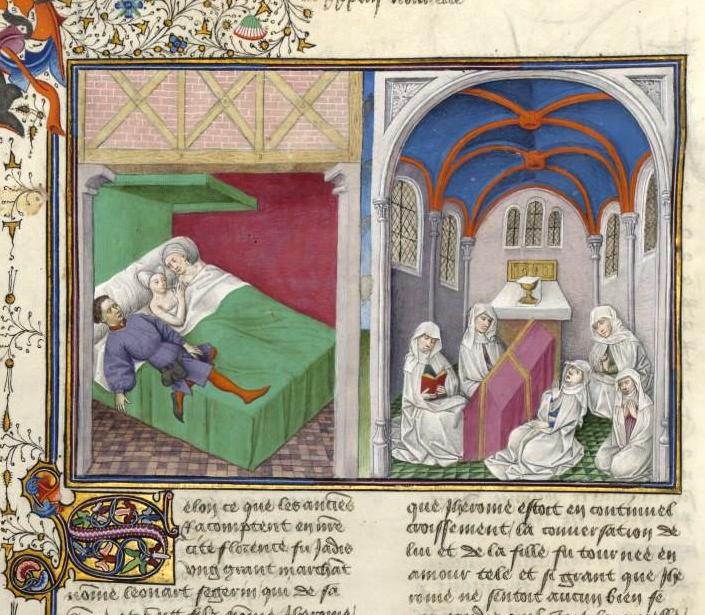 nouvelle
Selon ce que les anciēs
racomptent en nr̄e
cite florence fu Jadis
ung grant marchāt
nōme leonart segerin qui de sa
que Jherome estoit en continuel
croissement / la conversation de
lui et de la fille fu tournee en
amour tele et si grant que Jhe
rome ne sentoit aucun bien se